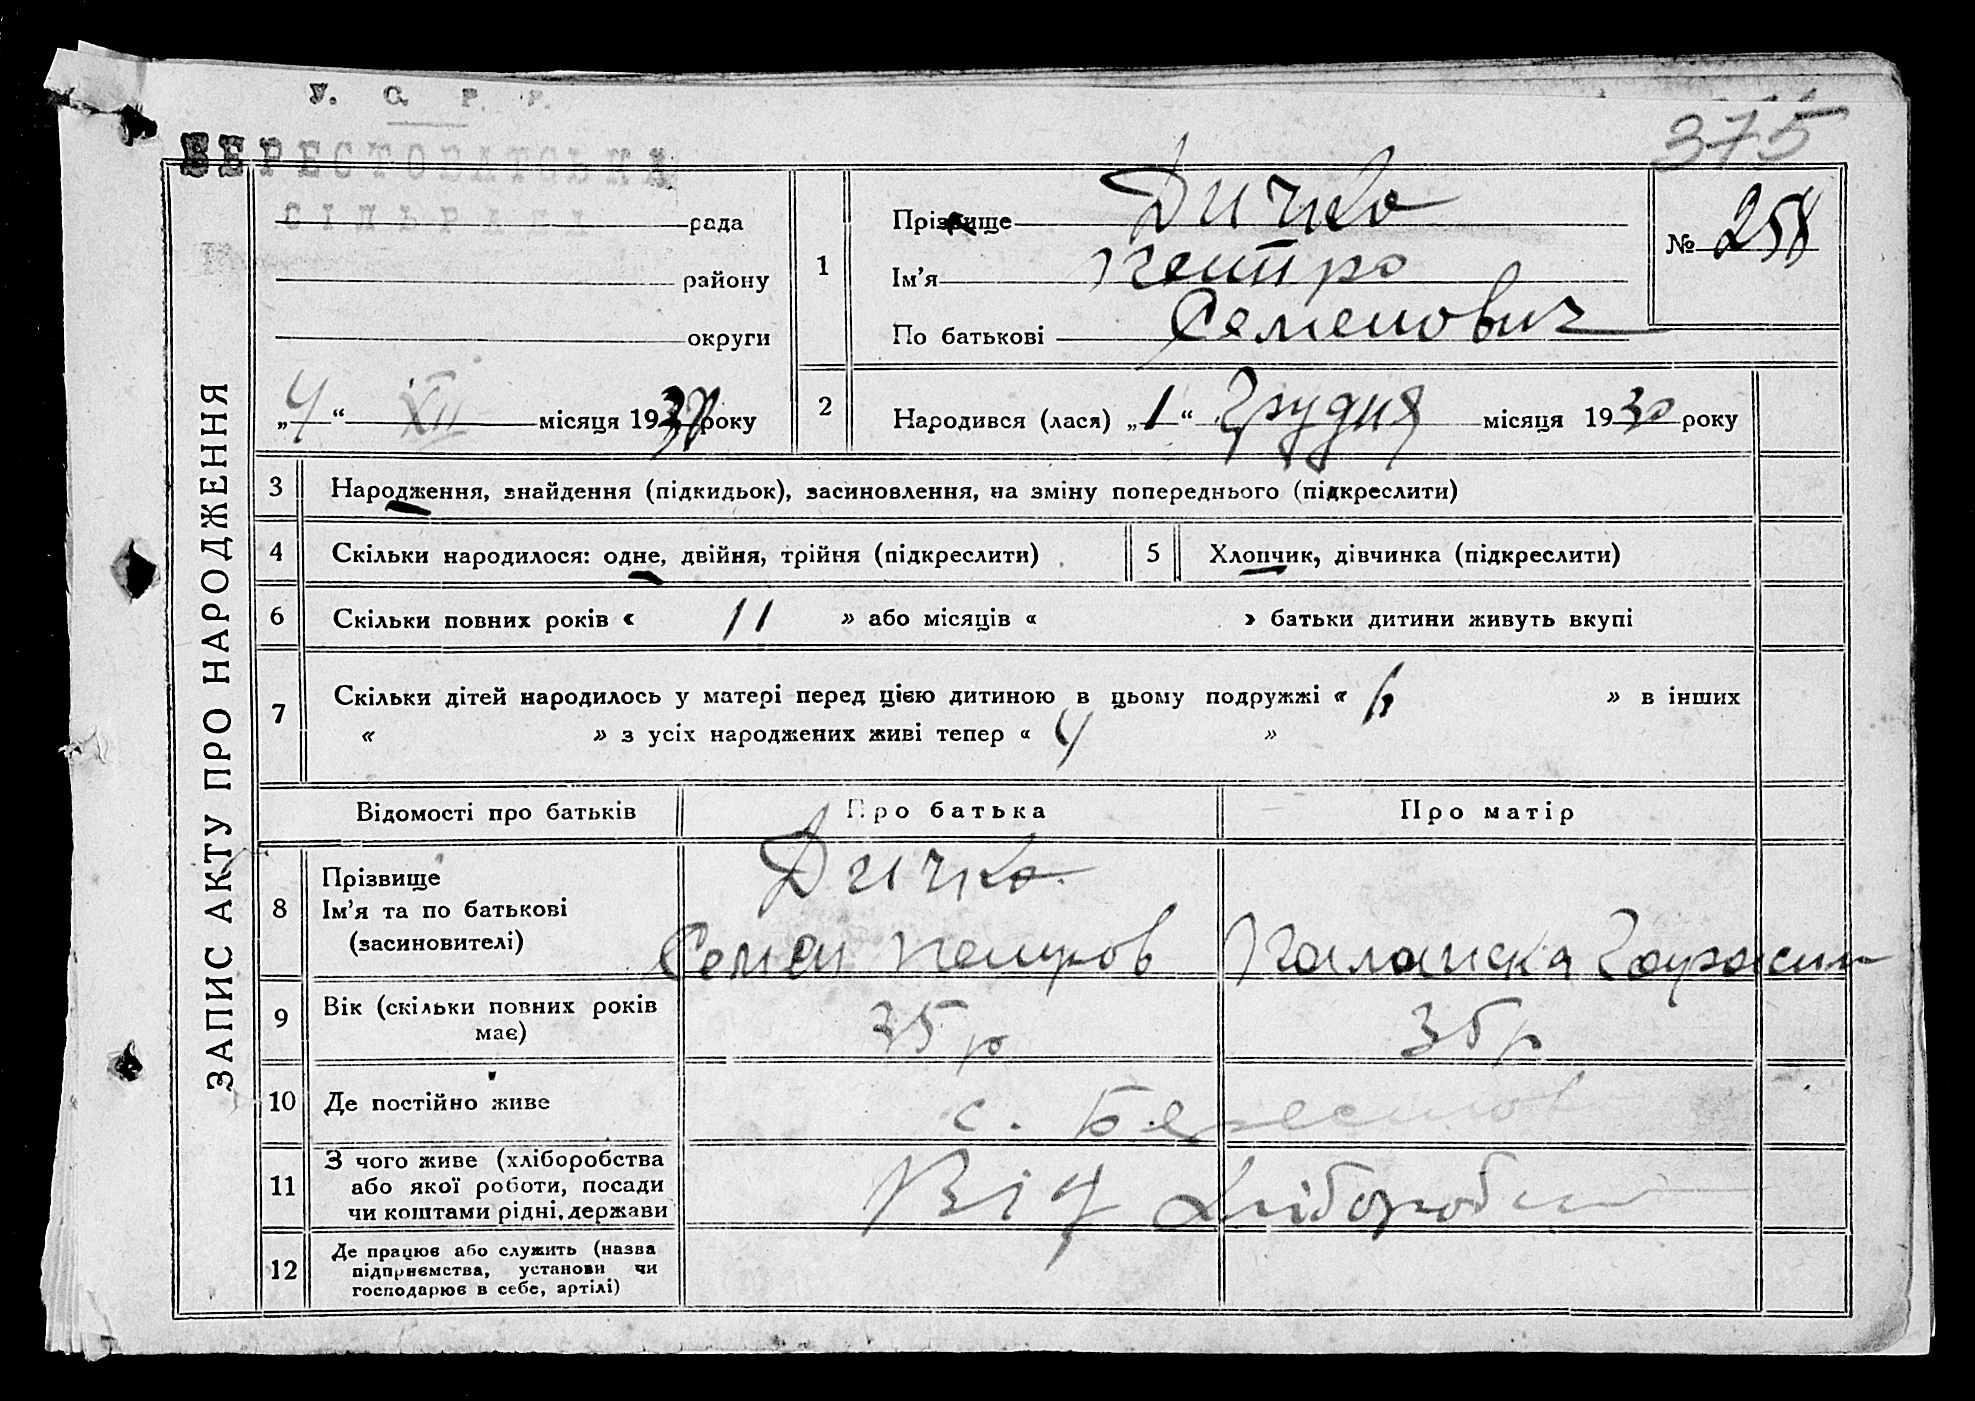 У. С. Р. Р.
375
БЕРЕСТОВАТСЬКА
СІЛЬРАДА
рада
району
округи
„4“ XII місяця 1930 року
1
Прізвище Дичко
Ім’я Петро
По батькові Семенович
№ 258
2
Народився (лася) „1“ Грудня місяця 1930 року
ЗАПИС АКТУ ПРО НАРОДЖЕННЯ
3 Народження, знайдення (підкидьок), засиновлення, на зміну попереднього (підкреслити)
4 Скільки народилося: одне, двійня, трійня (підкреслити) 5 Хлопчик, дівчинка (підкреслити)
6 Скільки повних років « 11 » або місяців « » батьки дитини живуть вкупі
7 Скільки дітей народилось у матері перед цією дитиною в цьому подружжі « 6 » в інших
« » з усіх народжених живі тепер « 4 »
Відомості про батьків Про батька Про матір
8 Прізвище
Ім’я та по батькові
(засиновителі)
Дичко
Семен Петров
9 Вік (скільки повних років
має)
35 р 35 р
10 Де постійно живе
с. Берестов
11 З чого живе (хліборобства
або якої роботи, посади
чи коштами рідні, держави
Від Хліборобст
12 Де працює або служить (назва
підприємства, установи чи
господарює в себе, артілі)